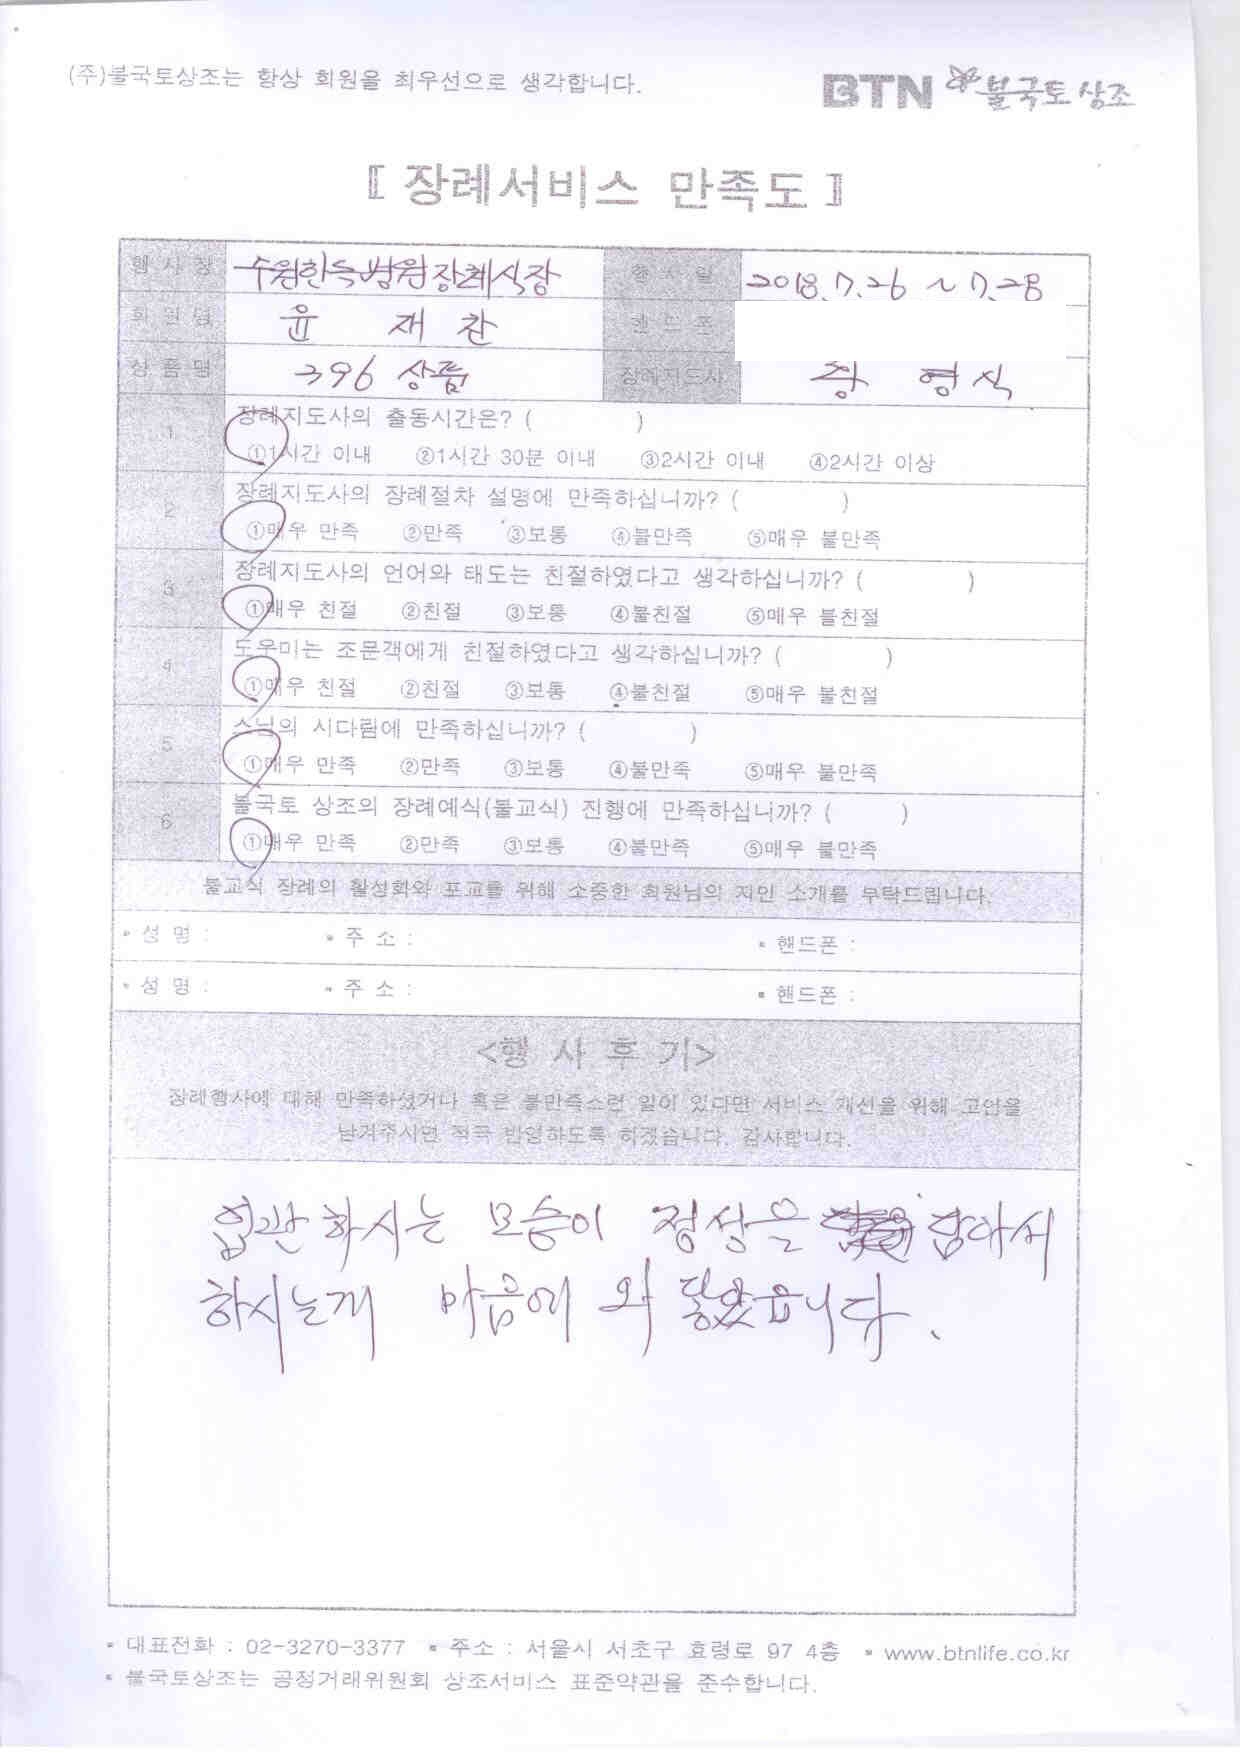 (주)불국토상조는 항상 회원을 최우선으로 생각합니다.
BTN 불국토 상조
〖 장례서비스 만족도 〗
행 사 장 수원한독병원장례식장 행 사 일 2018.7.26 ~ 7.28
회 원 명 윤 재 찬 핸 드 폰
상 품 명 396 상품 장례지도사 장 형 식
1 장례지도사의 출동시간은? ( )
①1시간 이내 ②1시간 30분 이내 ③2시간 이내 ④2시간 이상
2 장례지도사의 장례절차 설명에 만족하십니까? ( )
①매우 만족 ②만족 ③보통 ④불만족 ⑤매우 불만족
3 장례지도사의 언어와 태도는 친절하였다고 생각하십니까? ( )
①매우 친절 ②친절 ③보통 ④불친절 ⑤매우 불친절
4 도우미는 조문객에게 친절하였다고 생각하십니까? ( )
①매우 친절 ②친절 ③보통 ④불친절 ⑤매우 불친절
5 스님의 시다림에 만족하십니까? ( )
①매우 만족 ②만족 ③보통 ④불만족 ⑤매우 불만족
6 불국토 상조의 장례예식(불교식) 진행에 만족하십니까? ( )
①매우 만족 ②만족 ③보통 ④불만족 ⑤매우 불만족
불교식 장례의 활성화와 포교를 위해 소중한 회원님의 지인 소개를 부탁드립니다.
▪ 성 명 : ▪ 주 소 : ▪ 핸드폰 :
▪ 성 명 : ▪ 주 소 : ▪ 핸드폰 :
<행 사 후 기>
장례행사에 대해 만족하셨거나 혹은 불만족스런 일이 있다면 서비스 개선을 위해 고언을
남겨주시면 적극 반영하도록 하겠습니다. 감사합니다.
입관하시는 모습이 정성을 담아서
하시는게 마음에 와 닿았읍니다.
▪ 대표전화 : 02-3270-3377 ▪ 주소 : 서울시 서초구 효령로 97 4층 ▪ www.btnlife.co.kr
▪ 불국토상조는 공정거래위원회 상조서비스 표준약관을 준수합니다.